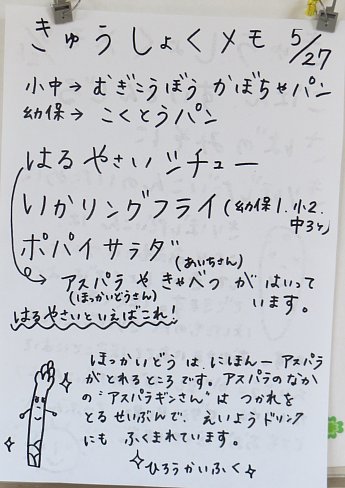 きゅうしょくメモ 5/27
小中→むぎこうぼう かぼちゃパン
幼保→ こくとうパン
はるやさいシチュー
いかリングフライ(幼保1.小2.
中3ヶ)
ポパイサラダ
(あいちさん)
アスパラ や きゃべつ が はいって
(ほっかいどうさん)
います。
はるやさいといえばこれ!
ほっかいどう は、にほん一 アスパラ
がとれるところです。アスパラのなか
の"アスパラギンさん"は つかれを
とる せいぶんで、えいようドリンク
にも ふくまれています。
ひろうかいふく